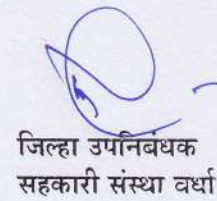 जिल्हा उपनिबंधक
सहकारी संस्था वर्धा